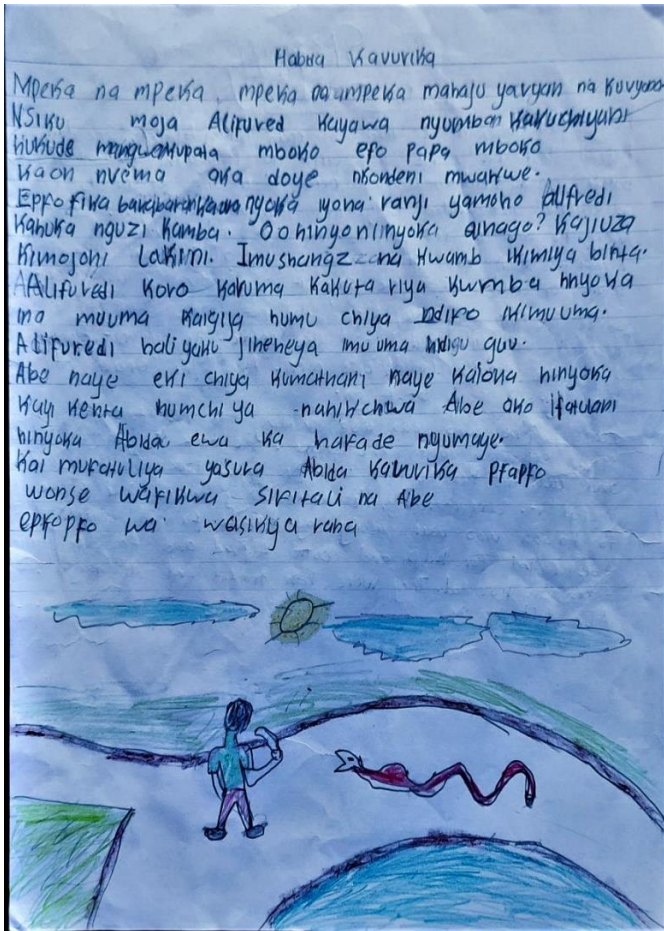 Habua Kavurika
Mpeka na mpeka, mpeka na umpeka mahaju yavyan na kuvyana
NSiku moja Alifured kayawa nyumban kakuchiyani
kukude mangwakupata mboko epo papa mboko
kaon nvema aka doye nkondeni mwakwe.
Eppo fika barabarankaona nyoka iyona ranji yamoho alifredi
kahuka nguzi kamba. Oohinyoniinyoka ainago? Kajiuza
kimojoni Lakini. Imushangz na kwamb ikimiya binta.
Alifuredi koro karuma kakuta riya kwmba hnyoka
ina muuma kaigiya humu chiya ndipo ikimuuma.
Alifuredi hali yaku jiheheya imu uma guu.
Abe naye eki chiya kumathani naye kaiona hinyoka
kayi kenta humchi ya nahikichwa Abe oko
hinyoka Abida ewa ka harade nyumaye.
kai yasura Abida kavurika
wonse wafikwa Sifitali na Abe
wa wasikiya raha